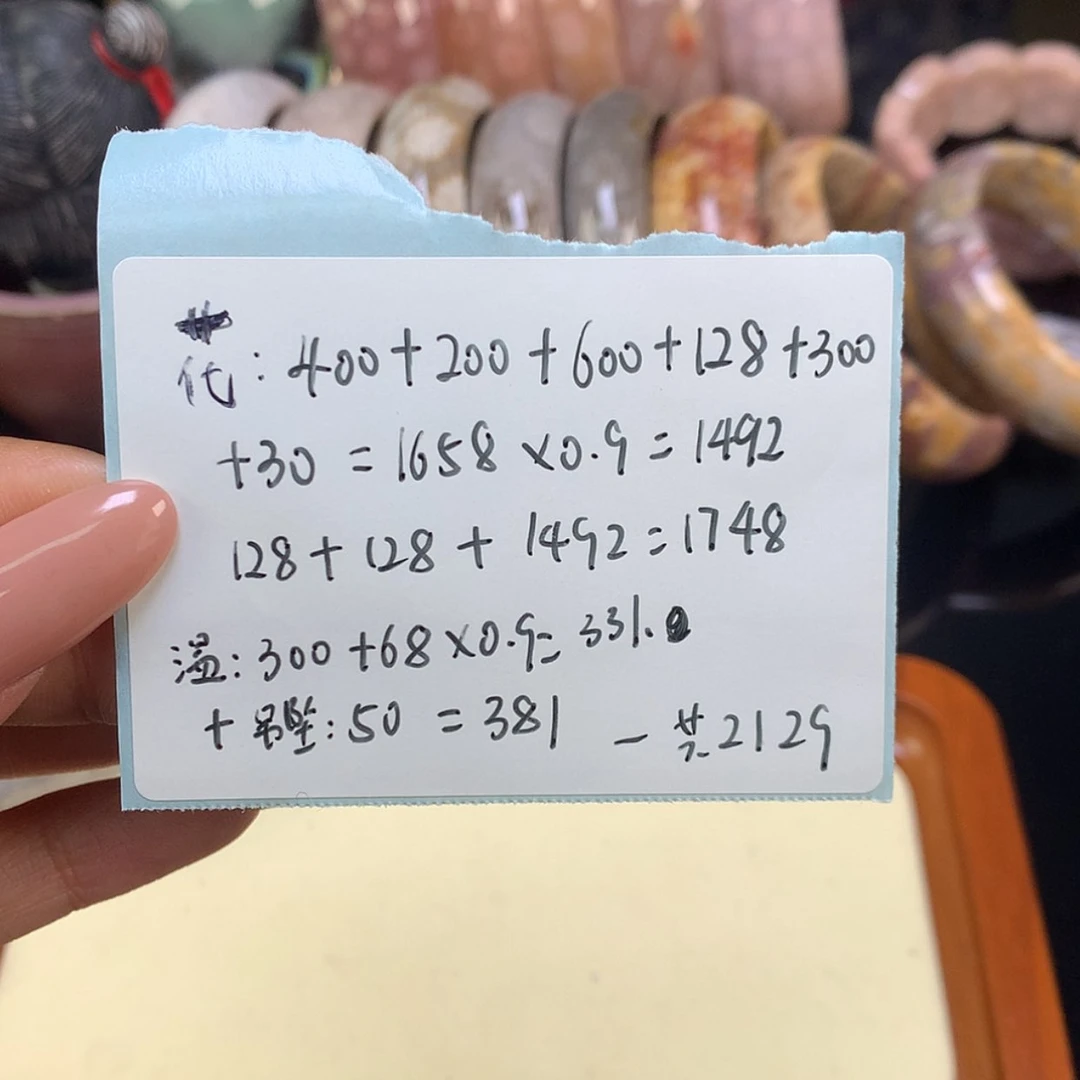 代: 400+200+600+128+300
+30 = 1658 ×0.9 = 1492
128+128+1492=1748
温: 300+68×0.9= 331.
+ 吊坠: 50 = 381 — 共2129